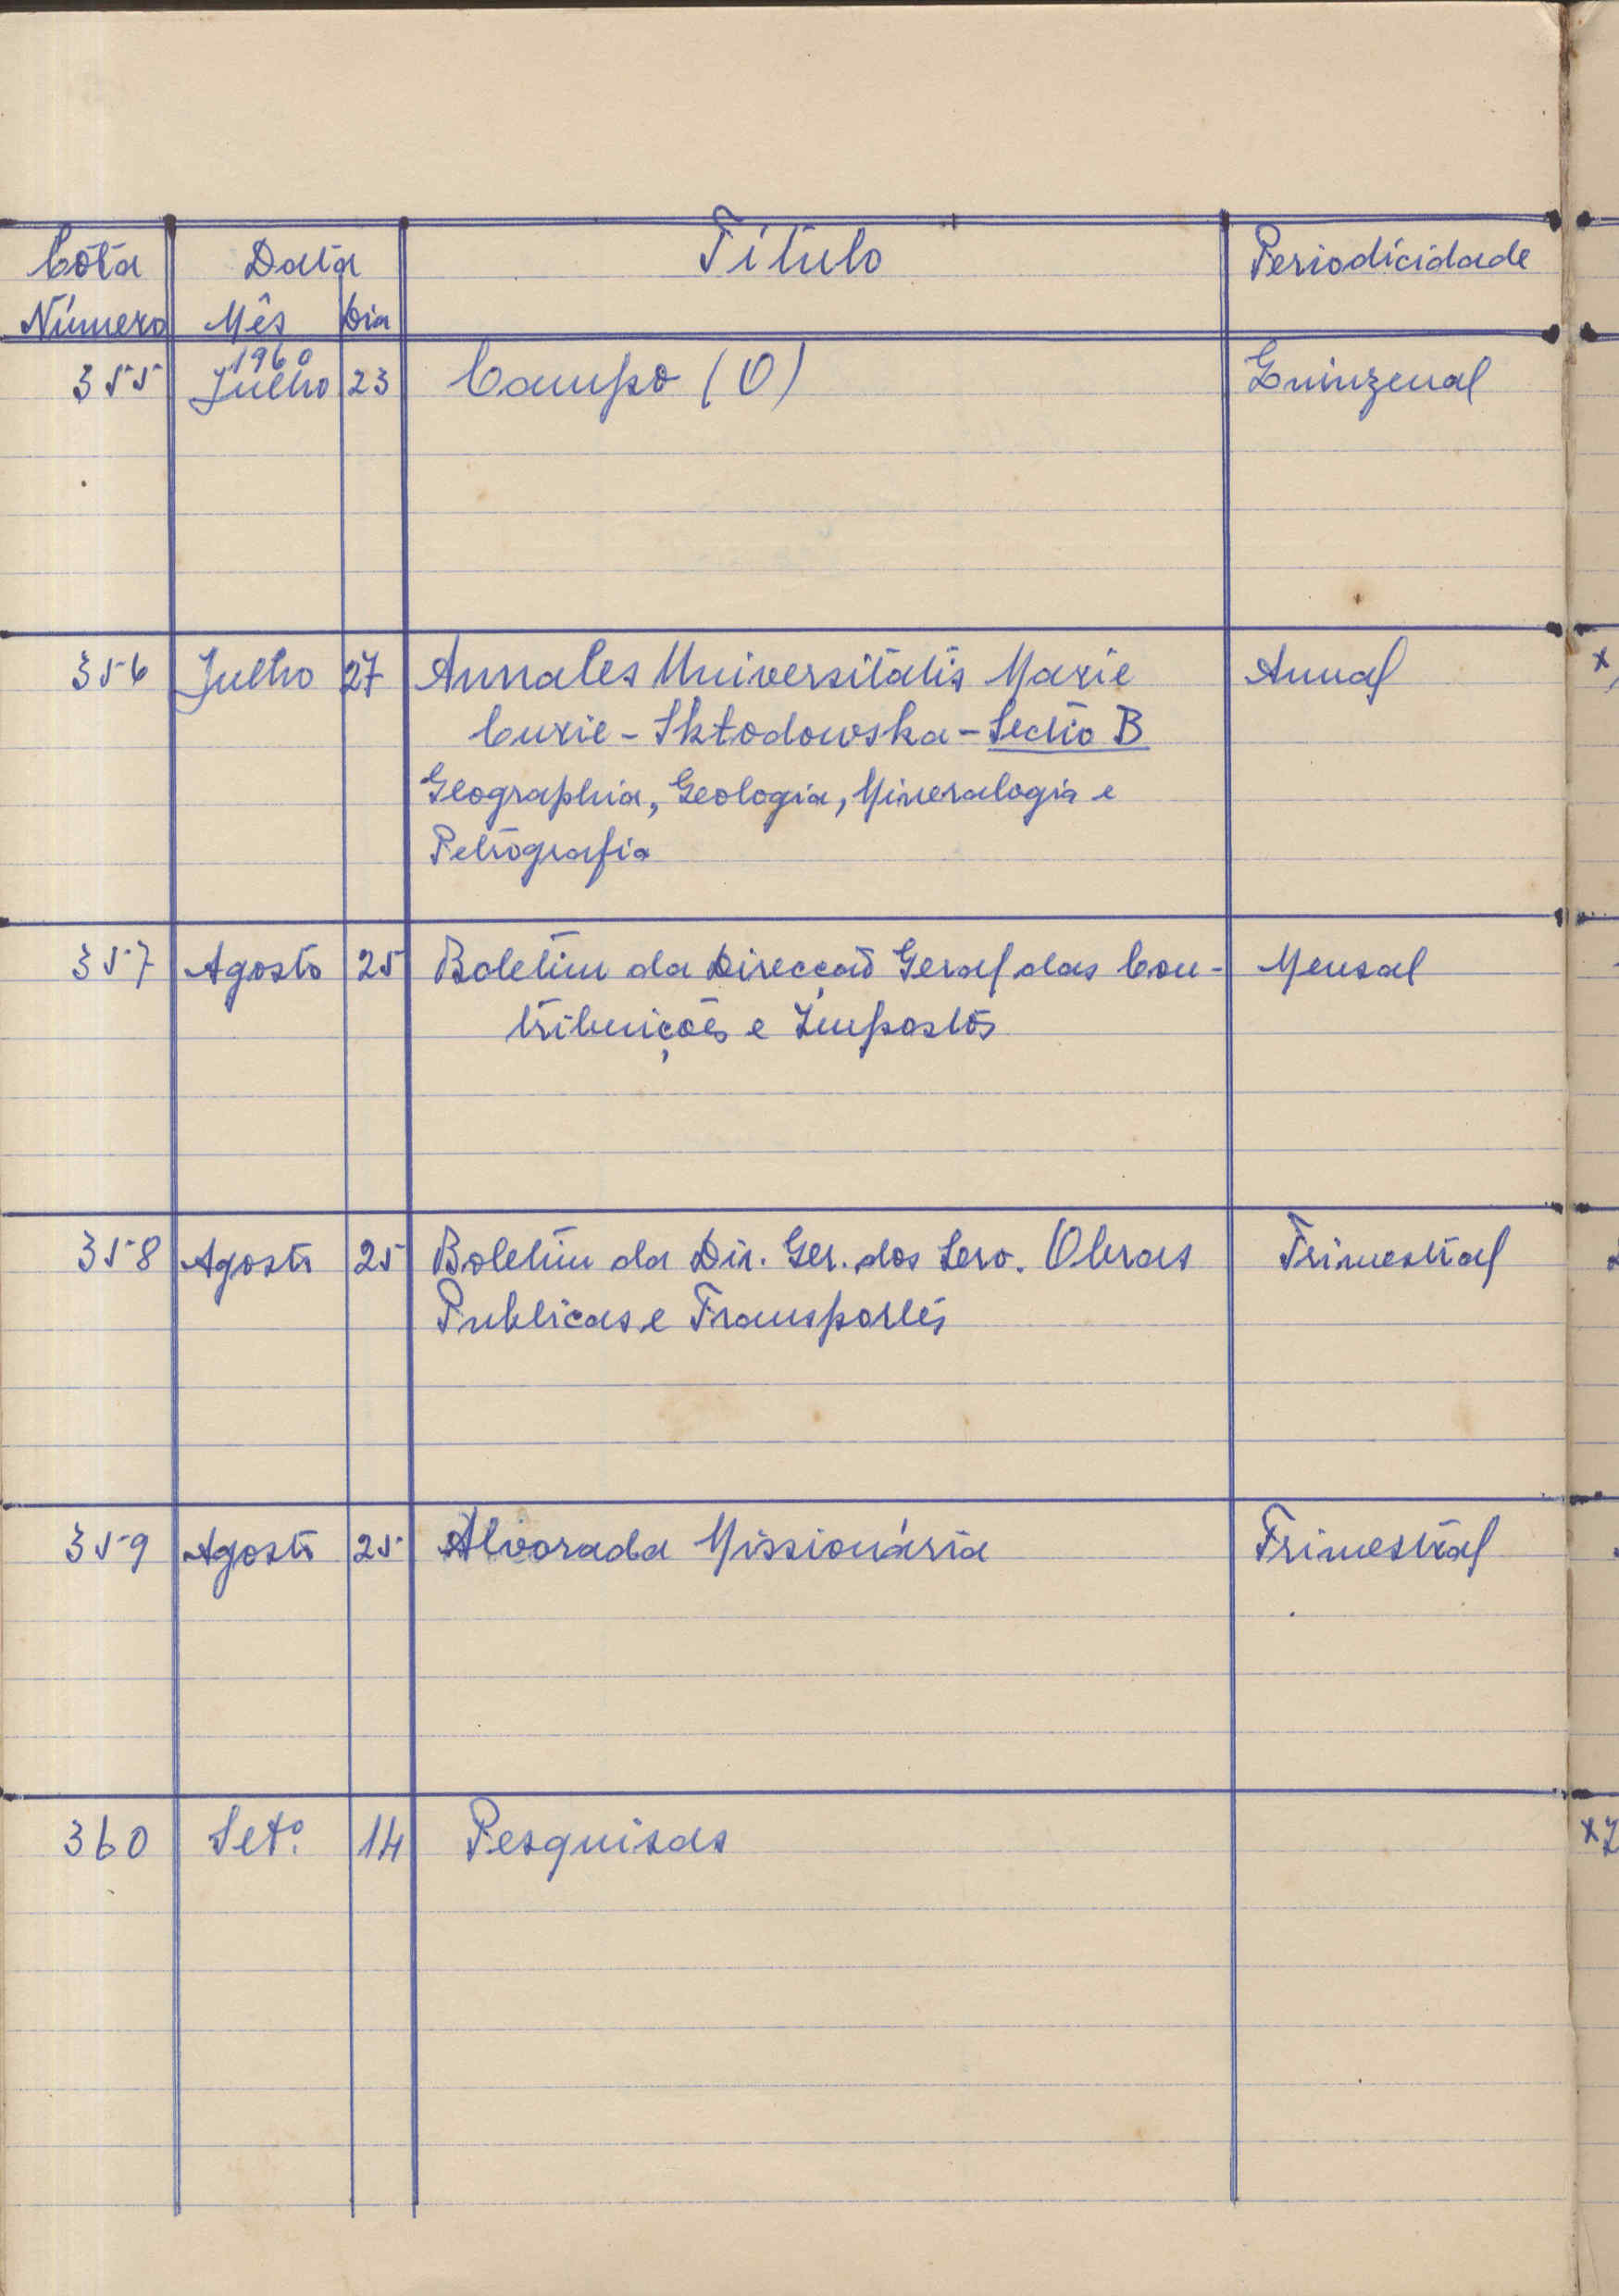 Cota Data Título Periodicidade
Número Mês Dia
1960
355 Julho 23 Campo (O) Quinzenal
356 Julho 27 Annales Universitatis Marie Anual
Curie - Skłodowska - Sectio B
Geographia, Geologia, Mineralogia e
Petrografia
357 Agosto 25 Boletim da Direcção Geral das Con- Mensal
tribuições e Impostos
358 Agosto 25 Boletim da Dir. Ger. dos Serv. Obras Trimestral
Publicas e Transportes
359 Agosto 25 Alvorada Missionária Trimestral
360 Setº. 14 Pesquisas